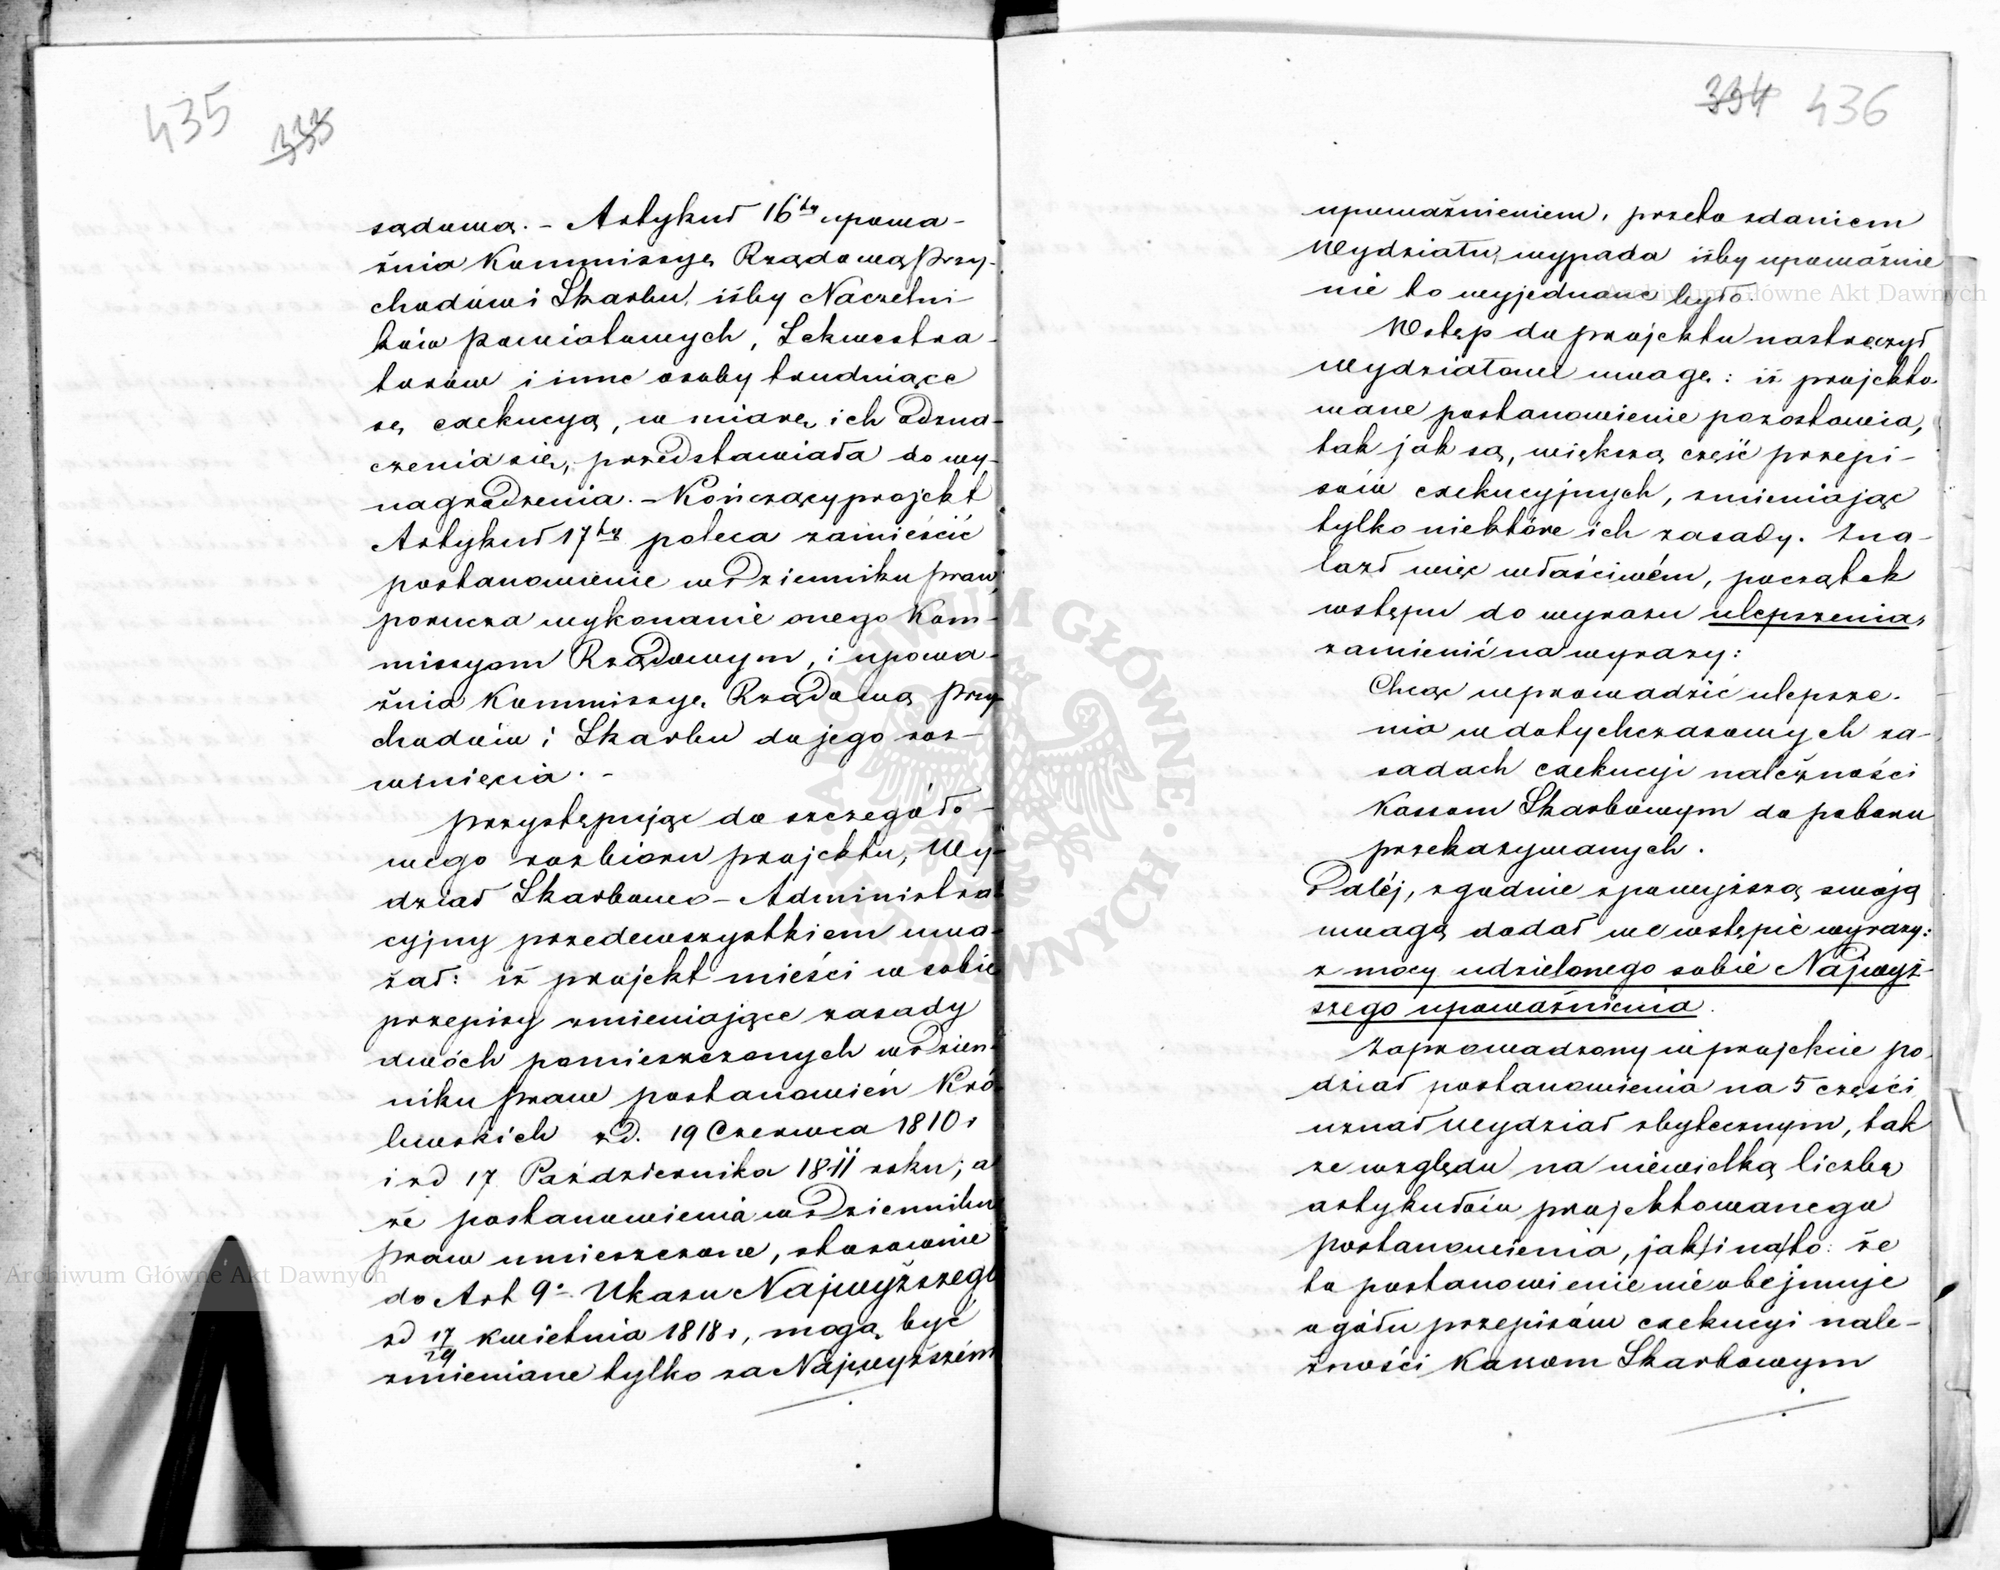 435 333
sądową. – Artykuł 16ty upowa-
żnia Kommissyę Rządową Przy-
chodów i Skarbu, iżby Naczelni-
ków Powiatowych, Sekwestra-
torów i inne osoby trudniące
się exekucyą, w miarę ich odzna-
czenia się, przedstawiała do wy-
nagrodzenia. – Kończący projekt
Artykuł 17ty poleca zamieścić
postanowienie w Dzienniku praw,
porucza wykonanie onego Kom-
missyom Rządowym, i upowa-
żnia Kommissyę Rządową Przy-
chodów i Skarbu do jego roz-
winięcia. –
Przystępując do szczegóło-
wego rozbioru projektu, Wy-
dział Skarbowo-Administra-
cyjny przedewszystkiem uwa-
żał: iż projekt mieści w sobie
przepisy zmieniające zasady
dwóch pomieszczonych w Dzien-
niku Praw postanowień Kró-
lewskich z d. 19 Czerwca 1810 r
i z d 17 Października 1811 roku; a
że postanowienia w Dzienniku
Praw umieszczone, stosownie
do Art 9o Ukazu Najwyższego
z d 17/29 kwietnia 1818 r, mogą być
zmieniane tylko za Najwyższém
334 436
upoważnieniem, przeto zdaniem
Wydziału, wypada iżby upoważnie
nie to wyjednane było.
Wstęp do projektu nastręczył
Wydziałowi uwagę: iż projekto-
wane postanowienie pozostawia,
tak jak są, większą część przepi-
sów exekucyjnych, zmieniając
tylko niektóre ich zasady. Zna-
lazł więc właściwém, początek
wstępu do wyrazu ulepszenia,
zamienić na wyrazy:
Chcąc wprowadzić ulepsze-
nia w dotychczasowych za-
sadach exekucyi należności
Kassom Skarbowym do poboru
przekazywanych.
Daléj, zgodnie z powyższą swoją
uwagą dodał we wstępie wyrazy:
z mocy udzielonego sobie Najwyż-
szego upoważnienia.
Zaprowadzony w projekcie po-
dział postanowienia na 5 części
uznał Wydział zbytecznym, tak
ze względu na niewielką liczbę
artykułów projektowanego
postanowienia, jak i na to: że
to postanowienie nie obejmuje
ogółu przepisów exekucyi nale-
żności Kassom Skarbowym
ARCHIWUM GŁÓWNE AKT DAWNYCH
Archiwum Główne Akt Dawnych
Archiwum Główne Akt Dawnych